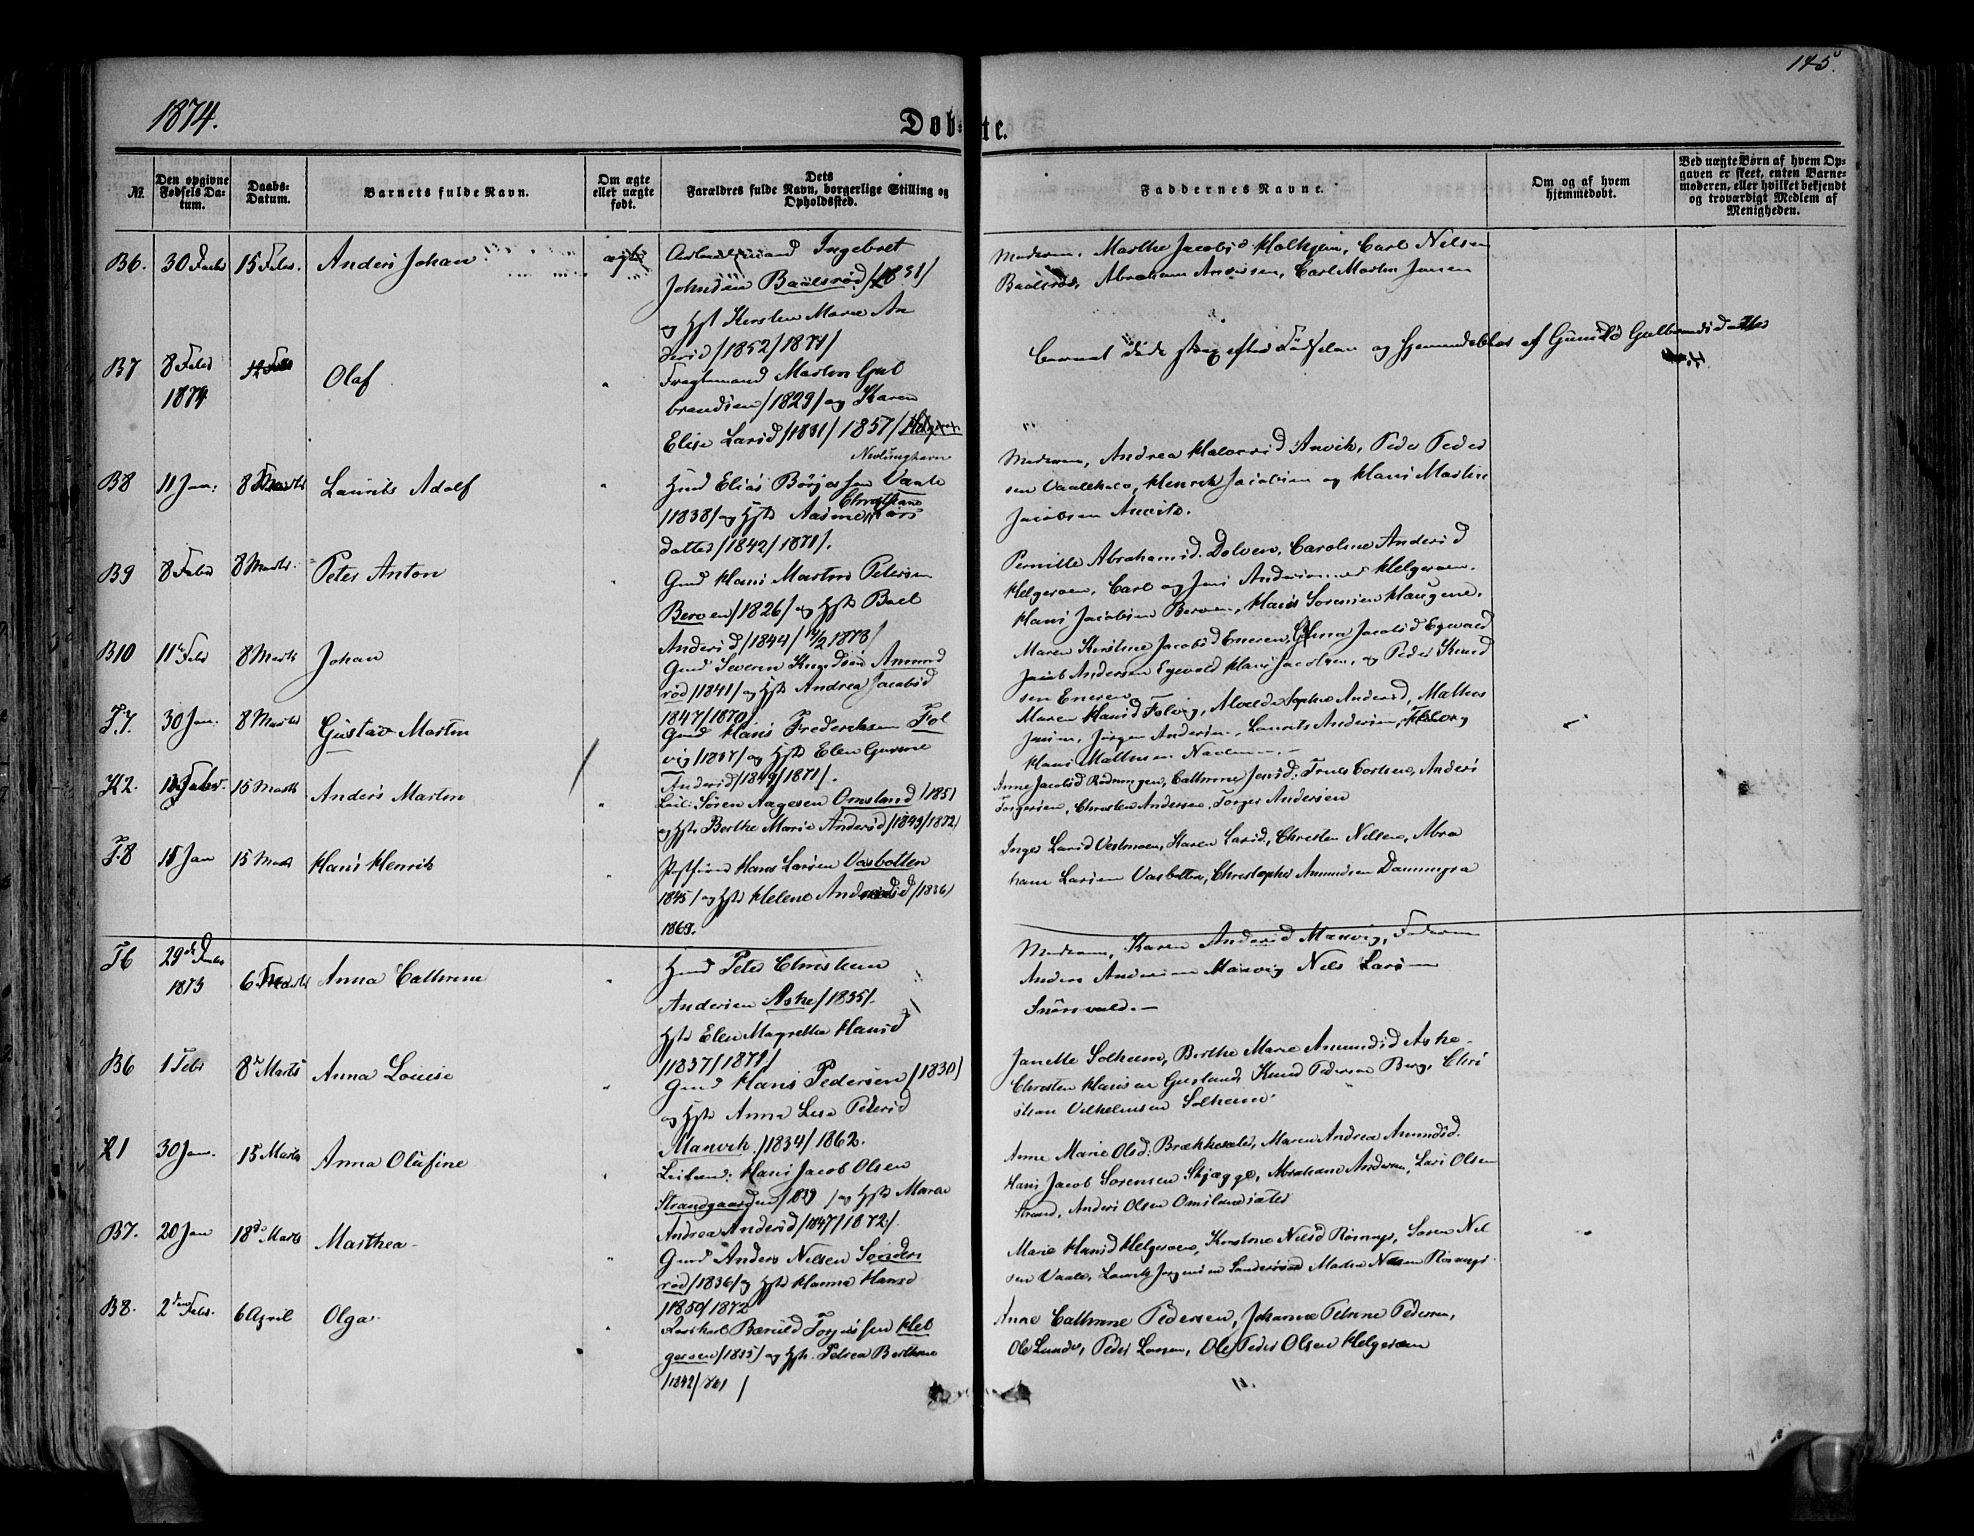 145.
1874.
Døb-te.
№.
Den opgivne Fødsels Da-tum.
Daabs-Datum.
Barnets fulde Navn.
Om ægte eller uægte født.
Dets Forældres fulde Navn, borgerlige Stilling og Opholdssted.
Faddernes Navne.
Om og af hvem hjemmedøbt.
Ved uægte Børn af hvem Op-gaven er skeet, enten Barne-moderen, eller hvilket bekjendt og troværdigt Medlem af Menigheden.
B6. 30 15 Febr. Anders Johan ægte Ingebret
Johnsen Baalsrød /1831/
og Hst Kirsten Marie An
dersd /1852/1871/
Moderen, Marthe Jacobsd Holhjem, Carl Nielsen
Baalsrød, Abraham Andersen, Carl Martin Jansen
B7 8 Febr 1874 Olaf
Fragtemand Martin Gul
brandsen /1829/ og Karen
Elise Larsd /1831/1857/
Nevlunghavn
Barnet døde strax efter Fødselen og hjemmedøbtes af Gunild Gulbrandsdatter
B8 11 Jan: 8 Marts Laurits Adolf
Hmd Elias Børjessen Vaale
/1838/ og Hst Christiane Lars
datter /1842/1871/.
Moderen, Andrea Halvorsd Anvik, Peder Peder
sen Vaale, Henrik Jacobsen og Hans Martin
Jacobsen Anvik.
B9 8 Febr 8 Marts. Peter Anton
Gmd Hans Martin Petersen
Berven /1826/ og Hst Boel
Andersd /1844/ 1873/
Pernille Abrahamsd. Dolven, Caroline Andersd
Helgeroen, Carl og Jens Andersen Helgeroen.
Hans Jacobsen Berven, Hans Sørensen Haugene.
B10 11 Febr 8 Marts Johan
Gmd Severin Knudsen Amund
rød /1841/ og Hst Andrea Jacobsd
1847/1870/
Maren Kirstine Jacobsd Eneren, Jacobsd Egevald
Jacob Andersen Egevold Hans Jacobsen, og Peder Knud
sen Eneren
F.7. 30 Jan. 8 Marts Gustav Martin
Gmd Hans Frederiksen Fol
vig /1837/ og Hst Elen Gurine
Andersd /1849/1871/.
Maren Hansd Folvig, Sophie Andersd, Mathias
Jansen, Jørgen Andersen, Laurits Andersen,
Hans Mathisen
K2. 15 Marts Anders Martin
Leil: Søren Aagesen Omsland /1851
og Hst Berthe Marie Andersd /1849/1872/
Anne Jacobsd Rødningen, Cathrine Jensd. Anders
Torgersen, Christen Andersen, Torger Andersen
F.8 15 Jan 15 Marts Hans Henrik
Hans Larsen Vasbotten
1845/ og Hst Helene /1836/
1869.
Inger Larsd Vestmoen, Karen Larsd, Christen Nilsen, Abra
ham Larsen Vasbotten, Christopher Amundsen Dammyra
F6 29de 1873 6 Anna Cathrine
Hmd Peter Christian
Andersen Aske /1835/.
Hst Elen Magrethe Hansd
/1837/1871/
Moderen, Karen Andersd Manvig, Faderen
Anders Andersen Manvig Nils Larsen
B6 1 Febr 8de Marts Anna Louise
Gmd Hans Pedersen /1830/
og Hst Anna Lise Petersd
Manvik /1834/1862.
Janette Solheim, Berthe Marie Amundsd Aske
Christen Hansen Gusland, Knud Pedersen Berg, Chri
stian Vilhelmsen Solheim.
L1 30 Jan. 15 Marts Anna Olufine
Leilænd: Hans Jacob Olsen
Strandgaarden /1839 / og Hst Maren
Andrea Andersd /1847/1872/.
Anne Marie Olsd: Brækkesæter, Maren Andrea Amundsd.
Hans Jacob Sørensen Skjægge, Abraham Andersen, Lars Olsen
Strand, Anders Olsen Omlandsæter
B7. 20 Jan 18de Marts Marthea
Gmd Anders Nilsen Sønders
rød /1836/ og Hst Hanna Hansd
/1850/1872
Marie Hansd Helgeroen, Kirstine Nilsd Rønnings, Søren Nil
sen Vaale, Laurits Jørgensen Sønderrød Martin Nilsen
B8. 2den Febr. 6 April Olga
Torjussen Hel
geroen /1835/ og Hst. Petrea Berthine
/1842/1861 /
Anne Cathrine Pedersen, Johanne Petrine Pedersen,
Ole Lunde, Peder Larsen, Ole Peder Olsen Helgeroen